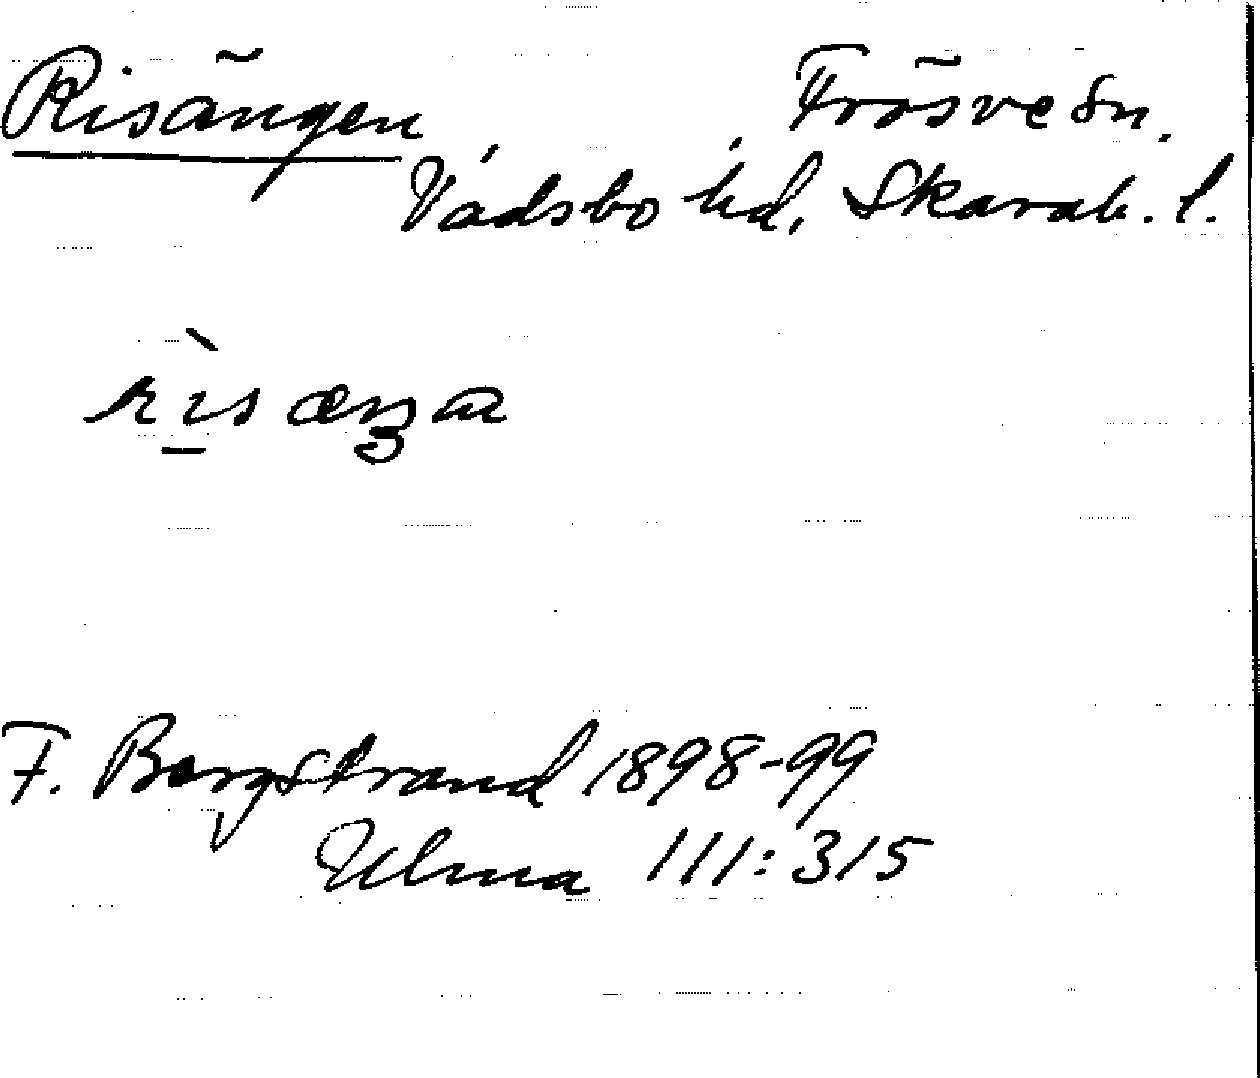 Risängen Frösve Sn.
Vadsbo hd, Skarab. l.
F. Bergstrand 1898-99
Ulma 111:315